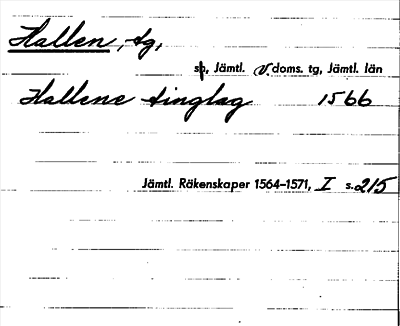 Hallen, tg,
sp, Jämtl. v. doms. tg, Jämtl. län
Hallene tinglag 1566
Jämtl. Räkenskaper 1564–1571, I s. 215